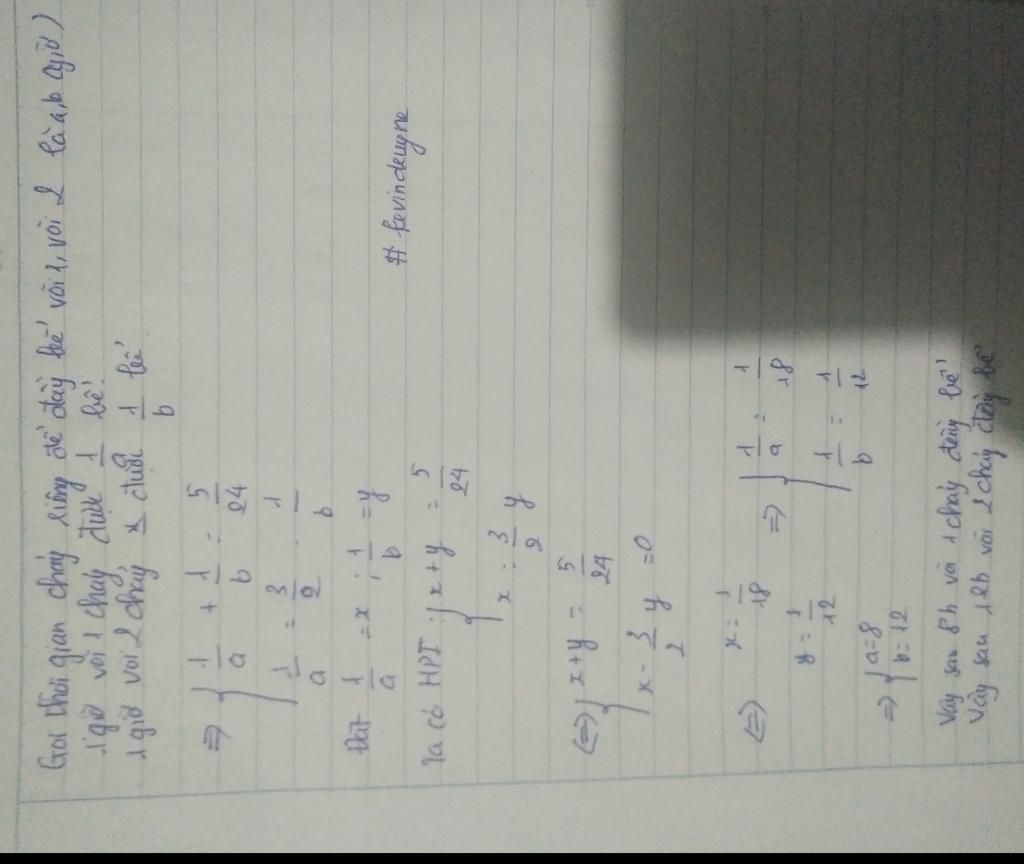 Gọi thời gian chảy riêng để đầy bể vòi 1, vòi 2 là a, b (giờ)
1 giờ vòi 1 chảy được 1/a bể.
1 giờ vòi 2 chảy được 1/b bể
=> { 1/a + 1/b = 5/24
1/a = 3/2 . 1/b
Đặt 1/a = x ; 1/b = y
Ta có HPT : { x + y = 5/24
x = 3/2 y
# kevindeuyne
<=> { x + y = 5/24
x - 3/2 y = 0
<=> x = 1/18 => { 1/a = 1/18
y = 1/12 1/b = 1/12
=> { a = 8
b = 12
Vậy sau 8h vòi 1 chảy đầy bể
Vậy sau 12h vòi 2 chảy đầy bể